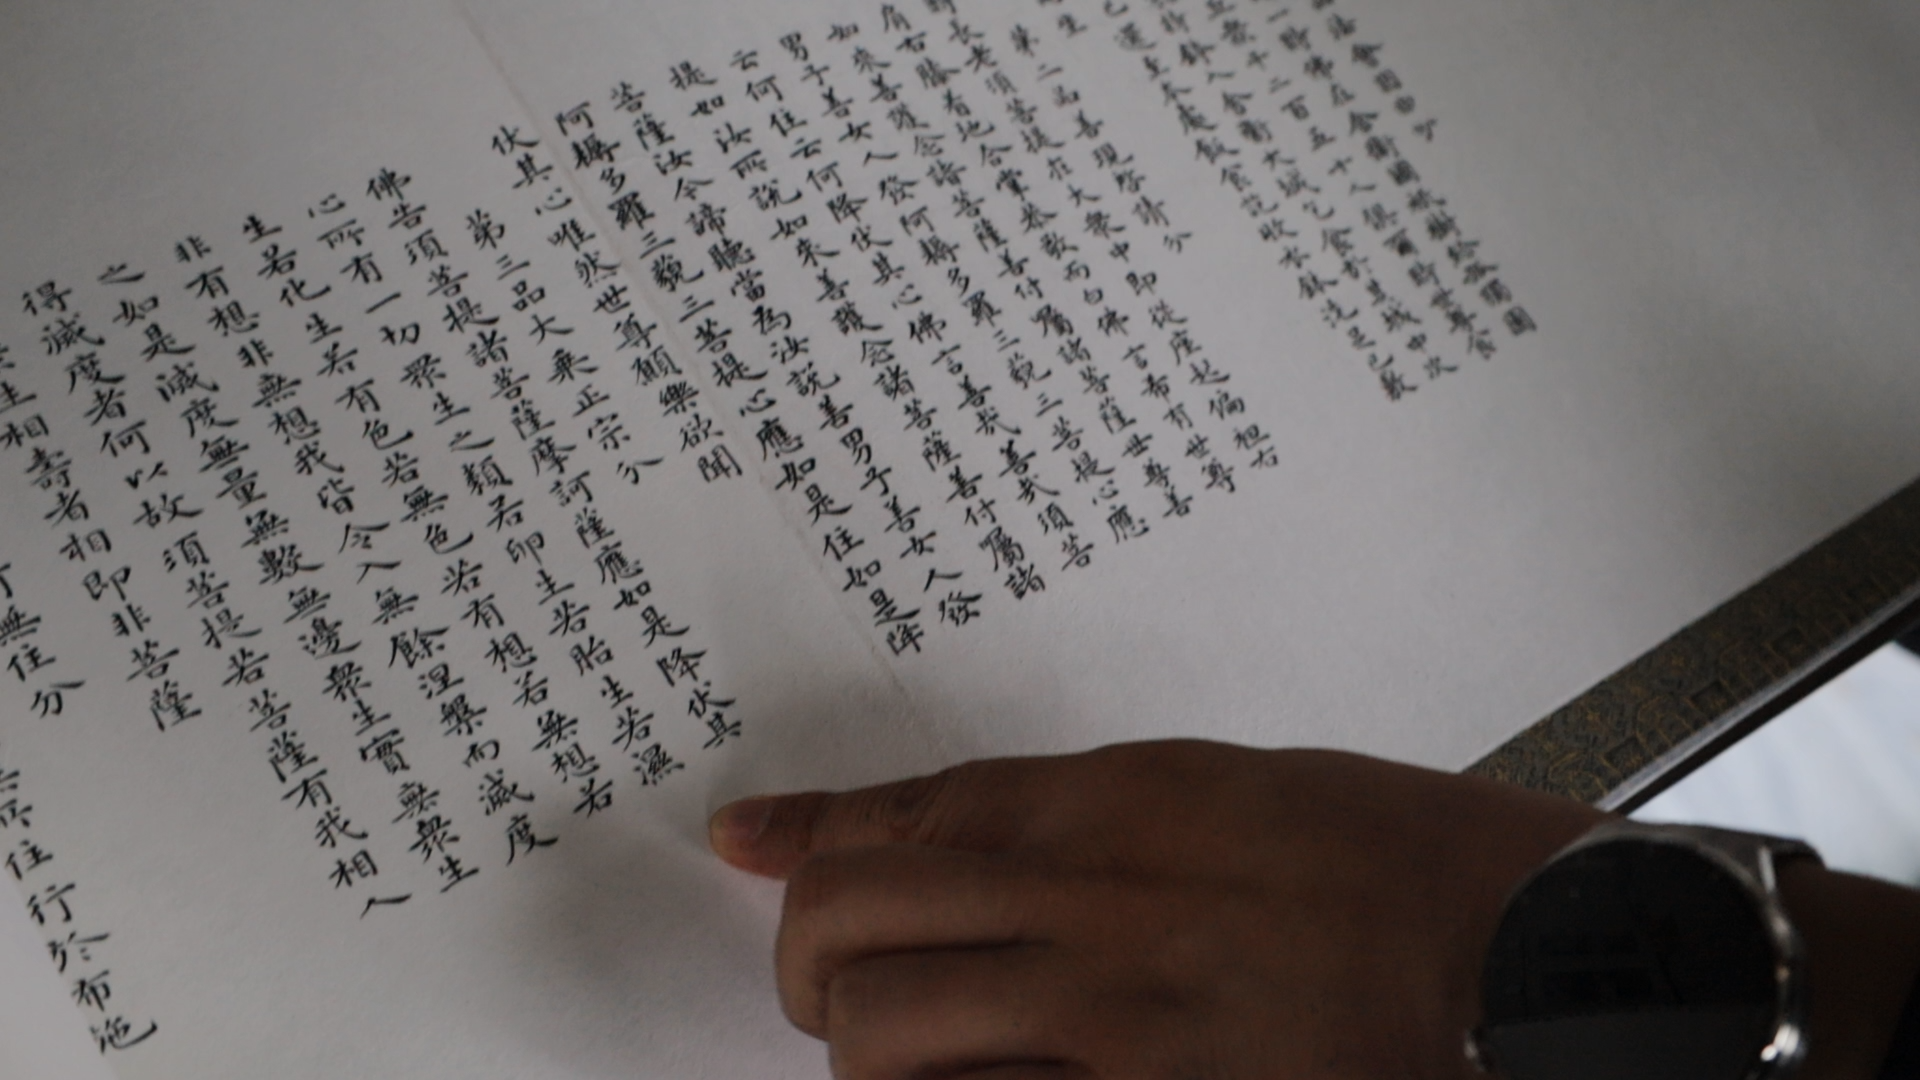 法會因由分
一時佛在舍衛國祇樹給孤獨園
眾千二百五十人俱爾時世尊食
持鉢入舍衛大城乞食於其城中次
已還至本處飯食訖收衣鉢洗足已敷
第二品善現啓請分
時長老須菩提在大衆中即從座起偏袒右
肩右膝着地合掌恭敬而白佛言希有世尊
如來善護念諸菩薩善付囑諸菩薩世尊善
男子善女人發阿耨多羅三藐三菩提心應
云何住云何降伏其心佛言善哉善哉須菩
提如汝所說如來善護念諸菩薩善付囑諸
菩薩汝今諦聽當為汝說善男子善女人發
阿耨多羅三藐三菩提心應如是住如是降
伏其心唯然世尊願樂欲聞
第三品大乘正宗分
佛告須菩提諸菩薩摩訶薩應如是降伏其
心所有一切眾生之類若卵生若胎生若濕
生若化生若有色若無色若有想若無想若
非有想非無想我皆令入無餘涅槃而滅度
之如是滅度無量無數無邊眾生實無眾生
得滅度者何以故須菩提若菩薩有我相人
生相壽者相即非菩薩
行無住分
所住行於布施